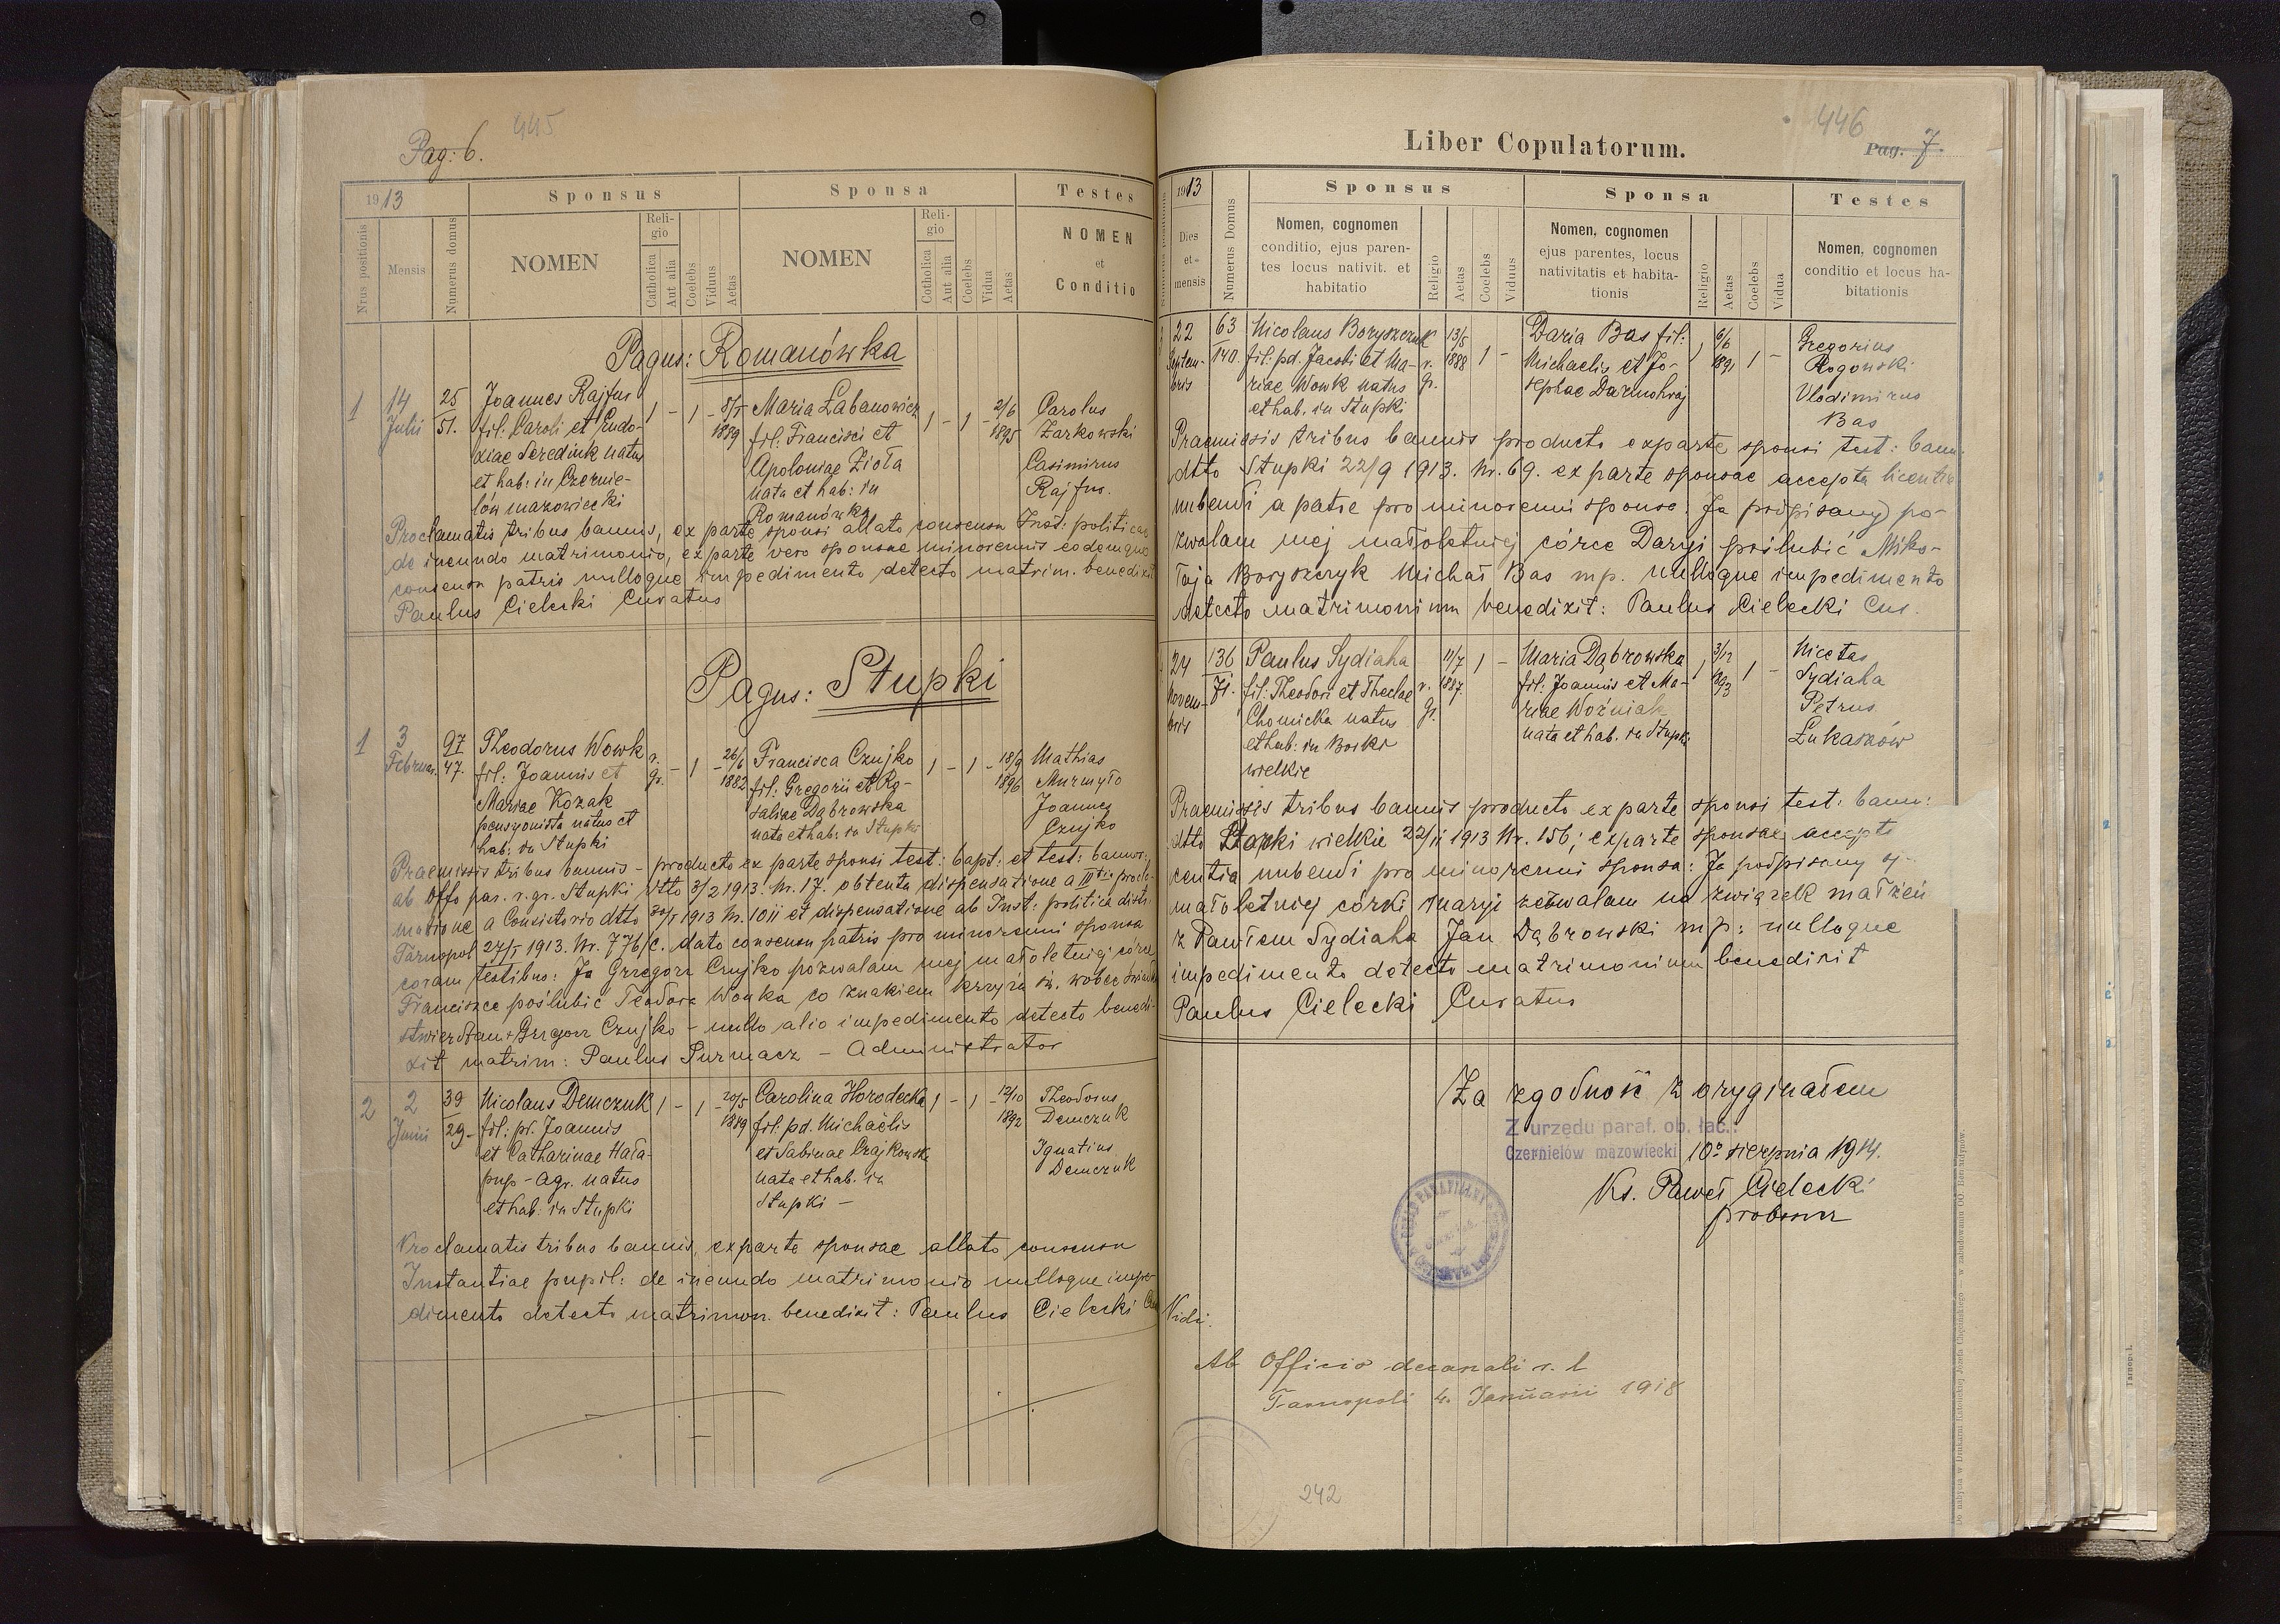 Pag: 6.
445
1913
Sponsus
Sponsa
Testes
Nrus positionis
Mensis
Numerus domus
NOMEN
Religio
Catholica
Aut alia
Coelebs
Viduus
Aetas
NOMEN
Religio
Catholica
Aut alia
Coelebs
Vidua
Aetas
NOMEN
et
Conditio
Pagus: Romanówka
1
14
Julii
25
51.
Joannes Rajfur
fil: Caroli et Eudo-
xiae Seredink natus
et hab: in Czernie-
lów mazowiecki
1 - 1 -
8/5
1889
Maria Łabanowicz
fil. Francisci et
Apoloniae Zioła
nata et hab: in
Romanówka
1 - 1 -
2/6
1895
Carolus
Żarkowski
Casimirus
Rajfur.
Proclamatis tribus bannis, ex parte sponsi allato consensu Inst: politicae
de ineundo matrimonio, ex parte vero sponsae minorennis eodemque
consensu patris nulloque impedimento detecto matrim. benedixit
Paulus Cielecki Curatus
Pagus: Stupki
1
3
Februar.
97
47.
Theodorus Wowk
fil: Joannis et
Mariae Kozak
pensyonista natus et
hab: in Stupki
r.
gr.
- 1 -
26/6
1882
Francisca Czujko
fil: Gregorii et Ro-
saliae Dąbrowska
nata et hab: in Stupki
1 - 1 -
18/9
1896
Mathias
Murmyło
Joannes
Czujko
Praemissis tribus bannis - producto ex parte sponsi test: bapt: et test: bannor:
ab Offo par. r. gr. Stupki dtto 3/2 1913. Nr. 17. obtenta dispensatione a IIItia procla-
matione a Consistorio dtto 30/I 1913 Nr. 1011 et dispensatione ab Inst: politica distr:
Tarnopol 27/I 1913. Nr. 776/c. dato consensu patris pro minorenni sponsa
coram testibus: Ja Grzegorz Czujko pozwalam mej małoletniej córce
Franciszce poślubić Teodora Wowka co znakiem krzyża św. wobec świadków
stwierdzam + Grzegorz Czujko - nullo alio impedimento detecto benedi-
xit matrim: Paulus Surmacz - Administrator
2
2
Junii
39
29-
Nicolaus Demczuk
fil: pd. Joannis
et Catharinae Hała-
pup - agr. natus
et hab: in Stupki
1 - 1 -
20/5
1889
Carolina Horodecka
fil: pd. Michaëlis
et Sabinae Czajkowska
nata et hab. in
Stupki -
1 - 1 -
12/10
1892
Theodorus
Demczuk
Ignatius
Demczuk
Proclamatis tribus bannis, ex parte sponsae allato consensu
Instantiae pupil: de ineundo matrimonio nulloque impe-
dimento detecto matrimon. benedixit: Paulus Cielecki Cur
Liber Copulatorum.
446
Pag. 7.
1913
Numerus positionis
Dies
et
mensis
Numerus Domus
Sponsus
Nomen, cognomen
conditio, ejus paren-
tes locus nativit. et
habitatio
Religio
Aetas
Coelebs
Viduus
Sponsa
Nomen, cognomen
ejus parentes, locus
nativitatis et habita-
tionis
Religio
Aetas
Coelebs
Vidua
Testes
Nomen, cognomen
conditio et locus ha-
bitationis
22
Septem-
bris
63
140.
Nicolaus Boryszczuk
fil: pd. Jacobi et Ma-
riae Wowk natus
et hab. in Stupki
r.
gr.
13/5
1888
1 -
Daria Bas fil:
Michaelis et Jo-
sephae Darmohraj
1
6/6
1891
1 -
Gregorius
Rogowski
Vlodimirus
Bas
Praemissis tribus bannis producto ex parte sponsi test: bann:
dtto Stupki 22/9 1913. Nr. 69. ex parte sponsae accepta licentia
nubendi a patre pro minorenni sponsa: Ja podpisany po-
zwalam mej małoletniej córce Daryi poślubić Miko-
łaja Boryszczyk Michał Bas mp. nulloque impedimento
detecto matrimonium benedixit: Paulus Cielecki Cur.
24
Novem-
bris
136
71.
Paulus Sydiaha
fil: Theodori et Theclae
Chomicka natus
et hab: in Borki
wielkie
r.
gr.
11/7
1887.
1 -
Maria Dąbrowska
fil: Joannis et Ma-
riae Woźniak
nata et hab. in Stupki
1
3/12
1893
1 -
Nicetas
Sydiaha
Petrus
Łukaszów
Praemissis tribus bannis producto ex parte sponsi test: bann:
dtto Borki wielkie 22/11 1913 Nr. 156; ex parte sponsae accepta
centia nubendi pro minorenni sponsa: Ja podpisany oj-
małoletniej córki Maryi zezwalam na związek małżeń
z Pawłem Sydiaha Jan Dąbrowski mp: nulloque
impedimento detecto matrimonium benedixit
Paulus Cielecki Curatus
Za zgodność z oryginałem
Z urzędu paraf. ob. łac.:
Czernielów mazowiecki 10go sierpnia 1914.
Ks. Paweł Cielecki
proboszcz
Vidi.
Ab Officio decanali r. l
Tarnopoli 4. Januarii 1918
242